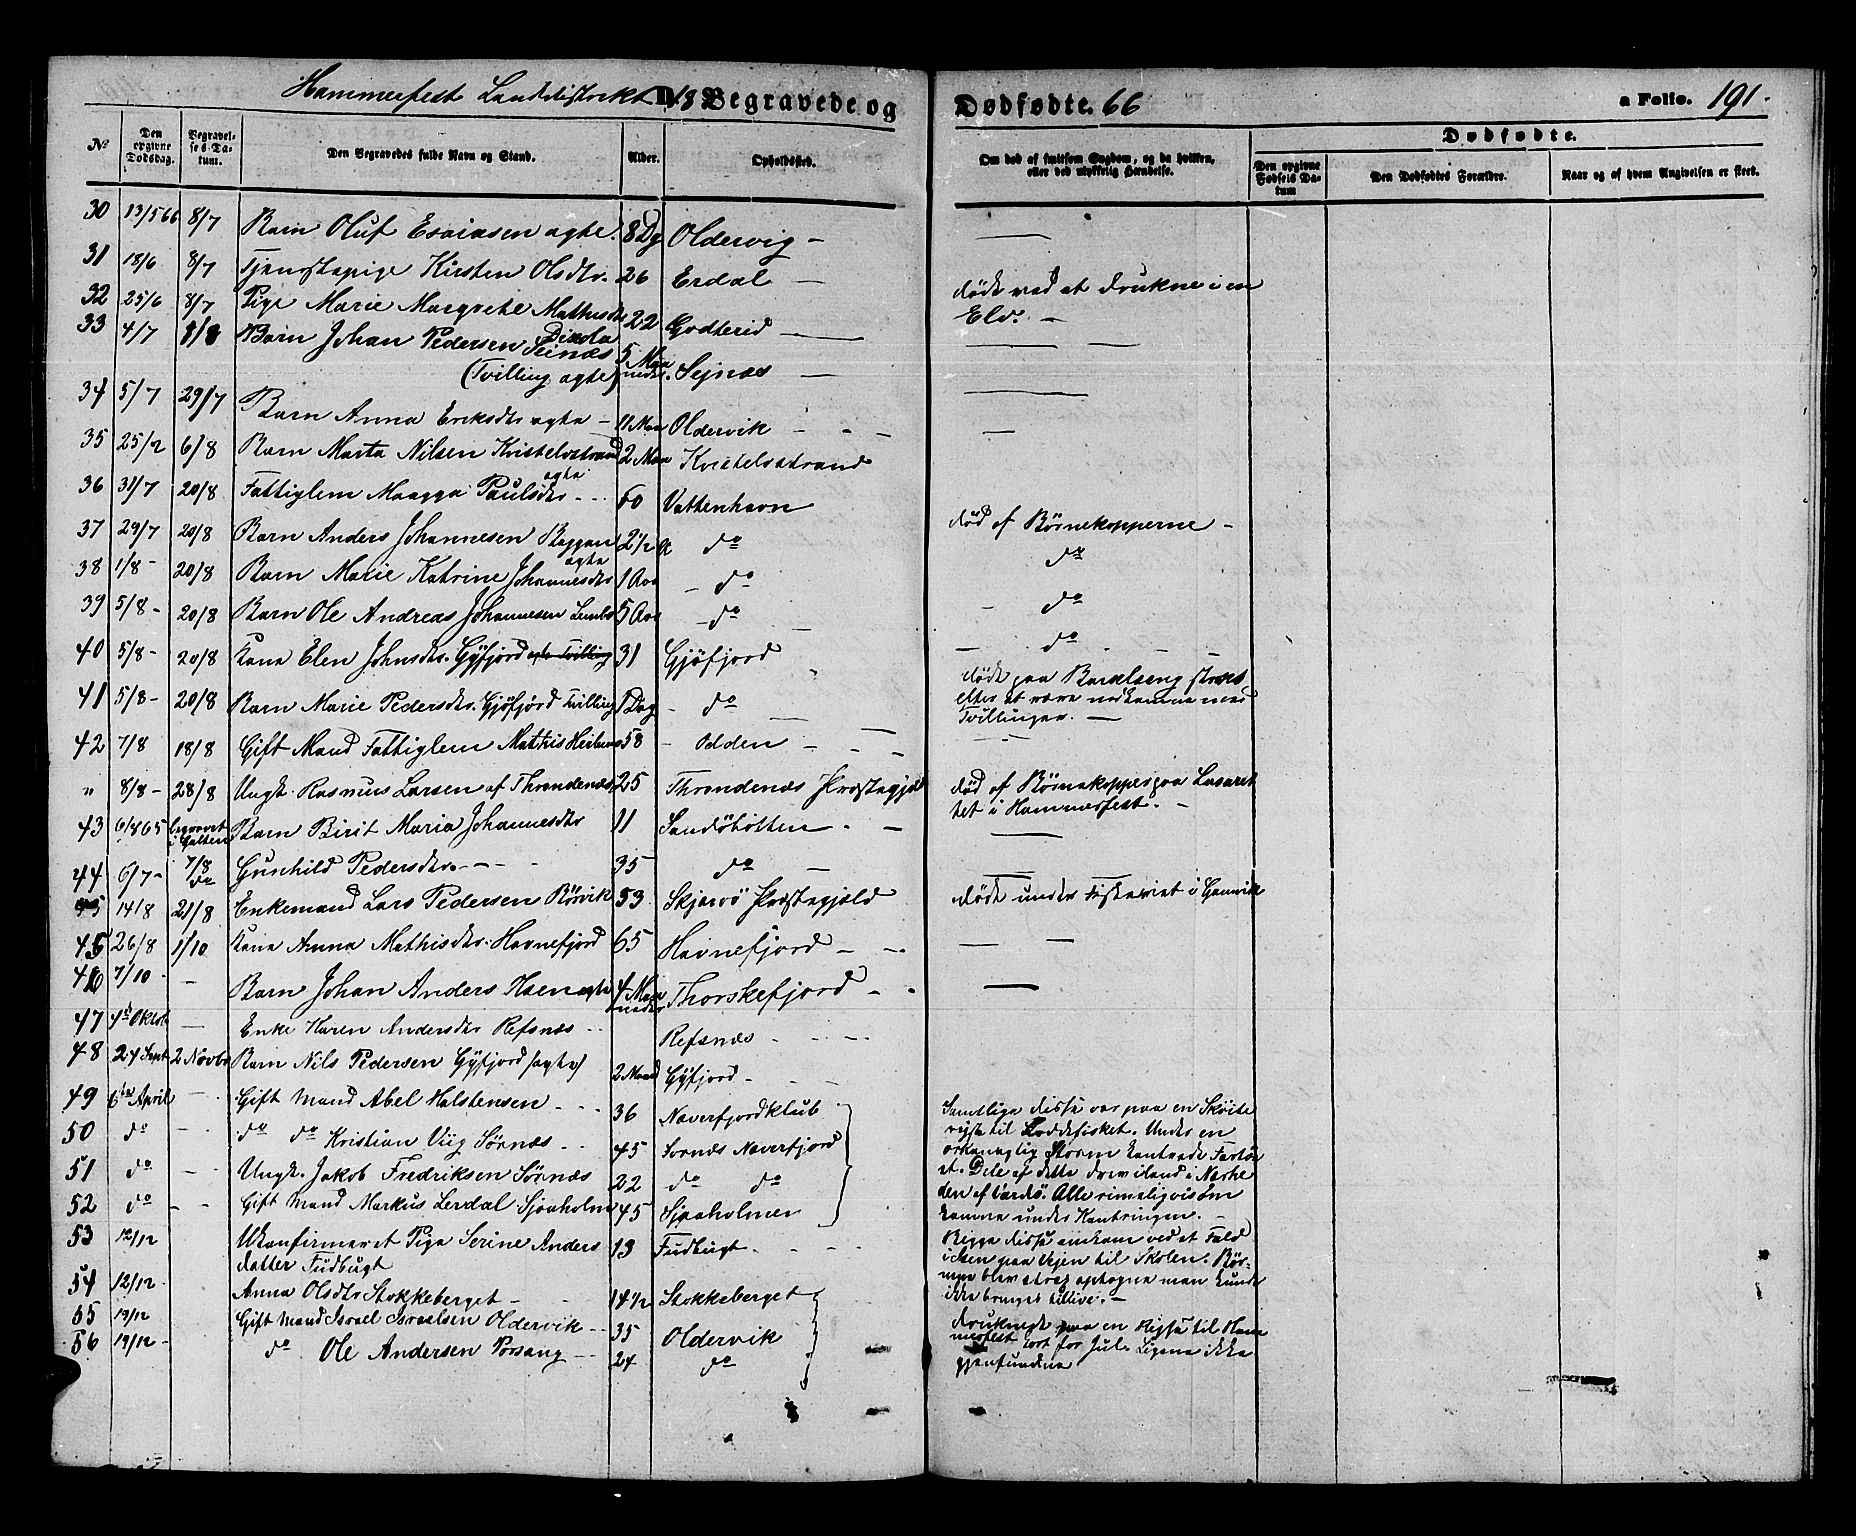 Hammerfest Landdistrikt 18 Begravede og Dødfødte. 66 a Folio. 191.
No Den opgivne Dødsdag. Begravelses Datum. Den Begravedes fulde Navn og Stand. Alder. Opholdssted. Om død af smitsom Sygdom, og da hvilken, eller ved ulykkelig Hændelse. Dødfødte.
Den opgivne Fødsels Datum Den Dødfødtes Forældre. Naar og af hvem Angivelsen er skeet.
30 13/5 66 8/7 Barn Oluf Esaiasen ægte. 8 Dg Oldervig –
31 18/6 8/7 Tjenestepige Kirsten Olsdtr. 26 Erdal – døde ved at drukne i en Elv. –
32 25/6 8/7 Pige Marie Margrethe Mathisdtr 22
33 4/7 1/8 Barn Johan Pedersen
(Tvilling ægte) 5 Maaneder. Sejnæs –
34 5/7 29/7 Barn Anna Eriksdtr ægte – 11 Maa Oldervik – – –
35 25/2 6/8 Barn Marta Nilsen Kvistelvstrand ægte 2 Maa Kvistelvstrand
36 31/7 20/8 Fattiglem Maagga Paulsdtr – – 60 Vattenhavn død af Børnekopperne –
37 29/7 20/8 Barn Anders Johannesen ægte 2½ do do
38 1/8 – 20/8 Barn Marie Katrine Johannesdtr 1 Aar – do – do
39 5/8 – 20/8 Barn Ole Andreas Johannesen 5 Aar – do – do
40 5/8 – 20/8 Kone Elen Johnsdtr. Gyfjord 31 Gjøfjord døde paa Barselseng strax efter at være nedkommen med Tvillinger. –
41 5/8 – 20/8 Barn Marie Pedersdtr. Gjøfjord Tvilling 1 Dag – do
42 7/8 18/8 Gift Mand Fattiglem Mathis 58 – Odden –
" 8/8 – 28/8 Ungk. Rasmus Larsen af Throndenæs 25 Throndenæs Præstegjæld død af Børnekopper paa Lasarettet i Hammerfest. –
43 6/8 65 begravet i Galten 7/8 Barn Birit Maria Johannesdtr 11 Sandøbotten. –
44 6/7 – do Gunhild Pedersdtr. – – 35 do –
45 14/8 21/8 Enkemand Lars Pedersen Rørvik 53 Skjervø Præstegjæld døde under Fiskeriet i Gamvik
45 26/8 1/10 Kone Anna Mathisdtr. Havnefjord 65 Havnefjord – –
46 7/10 – Barn Johan Anders ægte 4 Maaneder Thorskefjord – –
47 4de Oktob – Enke Karen Andersdtr Refsnæs – Refsnæs –
48 24 Sept 2 Novbr Barn Nils Pedersen Gyfjord (ægte) 2 Maand Gyfjord –
49 6te April – Gift Mand Abel Halstensen – 36 Naverfjordklub
50 do – do do Kristian Viig Sørnæs – 45 Sornæs Naverfjord
51 do – Ungk. Jakob Fredriksen Sørnæs 22 do do
52 do – Gift Mand Markus Lerdal Sjaaholmen 45 Sjaaholmen
Samtlige disse var paa en Skøite
rejse til Loddefisket. Under en
orkanagtig Storm kantrede Fartøi
et. Dele af dette drev iland i Nærhe
den af Vardø. Alle rimeligvis om
komne under Kantringen. –
53 12/12 Ukonfirmeret Pige Serine Anders
datter Fudbugt 13 Fudbugt. – – –
54 12/12 Anna Olsdtr Stokkeberget – 14½ Stokkeberget
Begge disse omkom ved et Fald
i Isen paa Vejen til Skolen. Bør-
nene blev strax optagne men kunde
ikke bringes tillive. –
55 19/12 Gift Mand Israel Israelsen Oldervik – 35 Oldervik
56 19/12 – do Ole Andersen Porsang – 24 do
druknede paa en Rejse til Ham
merfest kort før Jul. Ligene ikke
gjenfundne